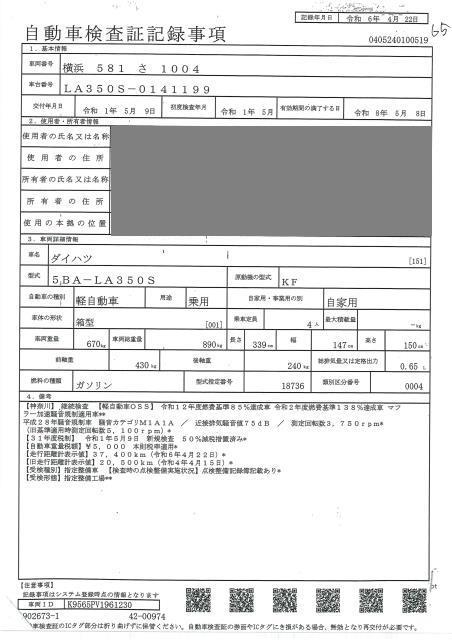 記録年月日 令和 6年 4月 22日
65
自動車検査証記録事項
0405240100519
1. 基本情報
車両番号 横浜 581 さ 1004
車台番号 LA350S-0141199
交付年月日 令和 1年 5月 9日 初度検査年月 令和 1年 5月 有効期間の満了する日 令和 8年 5月 8日
2. 使用者・所有者情報
使用者の氏名又は名称
使用者の住所
所有者の氏名又は名称
所有者の住所
使用の本拠の位置
3. 車両詳細情報
車名 ダイハツ [151]
型式 5BA-LA350S 原動機の型式 KF
自動車の種別 軽自動車 用途 乗用 自家用・事業用の別 自家用
車体の形状 箱型 [001] 乗車定員 4人 最大積載量 -kg
車両重量 670kg 車両総重量 890kg 長さ 339cm 幅 147cm 高さ 150cm
前軸重 430kg 後軸重 240kg 総排気量又は定格出力 0.65 L
燃料の種類 ガソリン 型式指定番号 18736 類別区分番号 0004
4. 備考
【神奈川】 継続検査 【軽自動車OSS】 令和12年度燃費基準85%達成車 令和2年度燃費基準138%達成車 マフ
ラー加速騒音規制適用車**
平成28年騒音規制車 騒音カテゴリM1A1A / 近接排気騒音値75dB / 測定回転数3,750rpm*
(旧基準適用時測定回転数5,100rpm)*
【31年度税制】 令和1年5月9日 新規検査 50%減税措置済み*
【自動車重量税額】 ¥5,000 本則税率適用*
【走行距離計表示値】 37,400km(令和6年4月22日)*
【旧走行距離計表示値】 20,500km(令和4年4月15日)*
【受検種別】指定整備車 【検査時の点検整備実施状況】点検整備記録簿記載あり*
【受検形態】指定整備工場**
【注意事項】
記録事項はシステム登録時点の情報となります
車両ID K9565PV1961230
902673-1 42-00974
自動車検査証のICタグ部分は折り曲げずに保管ください。自動車検査証の券面やICタグにき損がある場合、無効となり再交付が必要です。